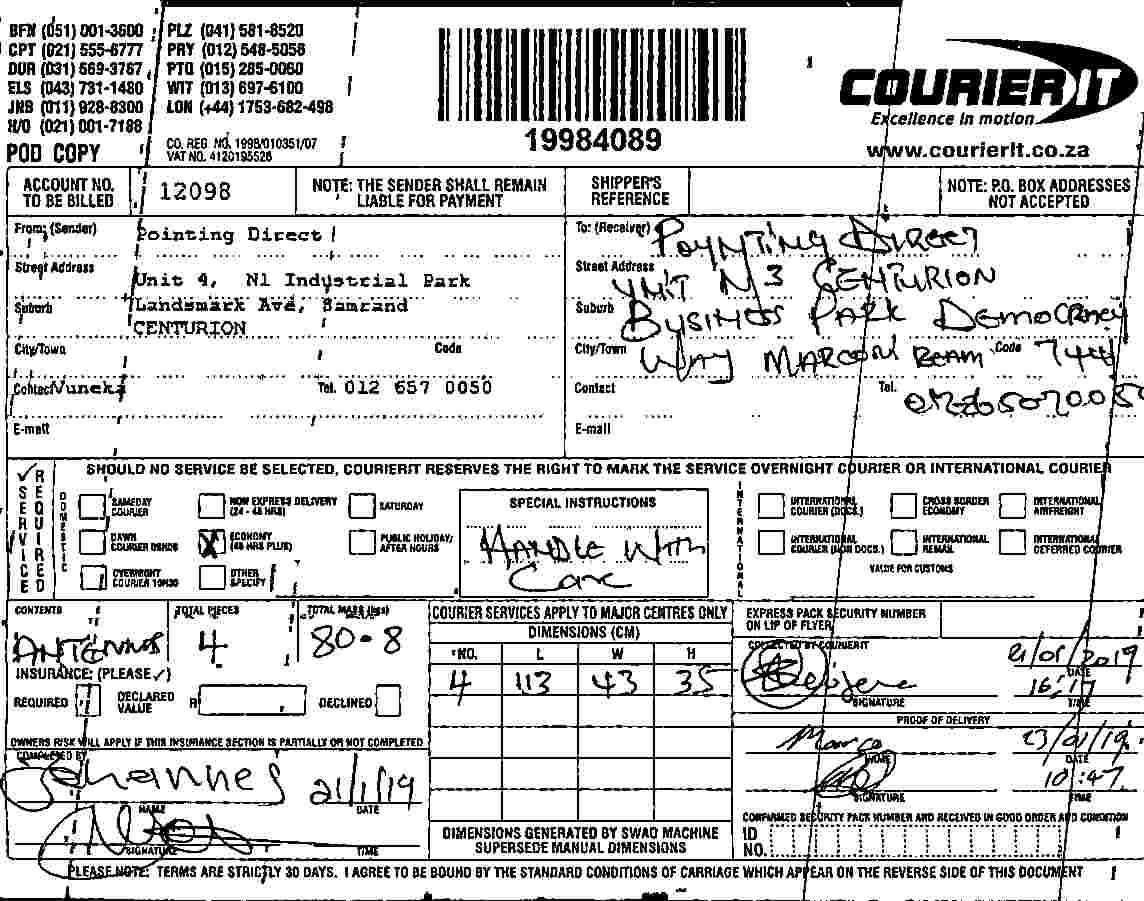 BFN (051) 001-3600 PLZ (041) 581-8520
CPT (021) 555-6777 PRY (012) 548-5058
DUR (031) 569-3767 PTG (015) 285-0060
ELS (043) 731-1480 WIT (013) 697-6100
JNB (011) 928-8300 LON (+44) 1753-682-498
H/O (021) 001-7188
POD COPY
CO. REG NO. 1998/010351/07
VAT NO. 4120195526
19984089
COURIER IT
Excellence in motion
www.courierit.co.za
ACCOUNT NO. TO BE BILLED 12098
NOTE: THE SENDER SHALL REMAIN LIABLE FOR PAYMENT
SHIPPER'S REFERENCE
NOTE: P.O. BOX ADDRESSES NOT ACCEPTED
From: (Sender) Pointing Direct
Street Address Unit 4, N1 Industrial Park
Suburb Landsmark Ave, Samrand
CENTURION
City/Town Code
Contact Vuneka Tel. 012 657 0050
E-mail
To: (Receiver) POYNTING DIRECT
Street Address UNIT N3 CENTURION
Suburb BUSINESS PARK DEMOCRACY
City/Town WAY MARCONI BEAM Code 7441
Contact Tel.
E-mail
SHOULD NO SERVICE BE SELECTED, COURIERIT RESERVES THE RIGHT TO MARK THE SERVICE OVERNIGHT COURIER OR INTERNATIONAL COURIER
✓ SERVICE REQUIRED
DOMESTIC
SAMEDAY COURIER
NOW EXPRESS DELIVERY (24 - 48 HRS)
SATURDAY
DAWN COURIER 09H00
X ECONOMY (48 HRS PLUS)
PUBLIC HOLIDAY/ AFTER HOURS
OVERNIGHT COURIER 10H30
OTHER SPECIFY
SPECIAL INSTRUCTIONS
HANDLE WITH
Care
INTERNATIONAL
INTERNATIONAL COURIER (DOCS.)
CROSS BORDER ECONOMY
INTERNATIONAL AIRFREIGHT
INTERNATIONAL COURIER (NON DOCS.)
INTERNATIONAL REMAIL
INTERNATIONAL DEFERRED COURIER
VALUE FOR CUSTOMS
CONTENTS TOTAL PIECES TOTAL MASS (kgs)
ANTENNAS 4 80.8
INSURANCE: (PLEASE ✓)
REQUIRED DECLARED VALUE R DECLINED
OWNERS RISK WILL APPLY IF THIS INSURANCE SECTION IS PARTIALLY OR NOT COMPLETED
COMPLETED BY
Johannes 21/1/19
NAME DATE
SIGNATURE TIME
COURIER SERVICES APPLY TO MAJOR CENTRES ONLY
DIMENSIONS (CM)
NO. L W H
4 113 43 35
DIMENSIONS GENERATED BY SWAD MACHINE
SUPERSEDE MANUAL DIMENSIONS
EXPRESS PACK SECURITY NUMBER
ON LIP OF FLYER
COLLECTED BY COURIERIT
21/01/2019
DATE
16:17
SIGNATURE TIME
PROOF OF DELIVERY
23/01/19
NAME DATE
10:47
SIGNATURE TIME
CONFIRMED SECURITY PACK NUMBER AND RECEIVED IN GOOD ORDER AND CONDITION
ID NO.
PLEASE NOTE: TERMS ARE STRICTLY 30 DAYS. I AGREE TO BE BOUND BY THE STANDARD CONDITIONS OF CARRIAGE WHICH APPEAR ON THE REVERSE SIDE OF THIS DOCUMENT